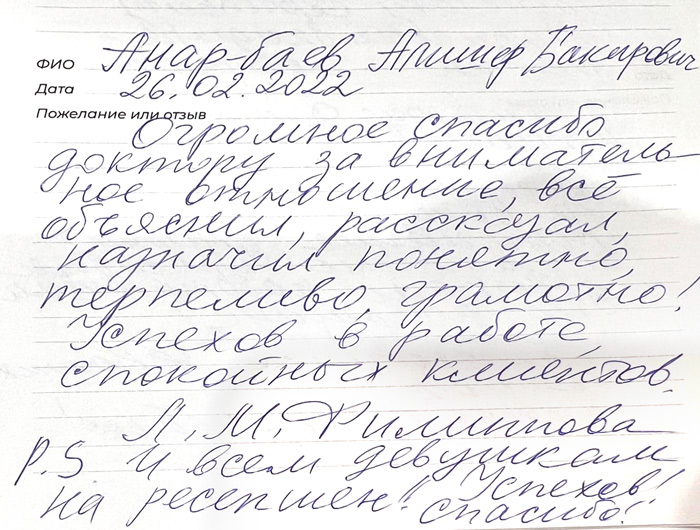 ФИО Анар-баев Алишер Бакирович
Дата 26.02.2022
Пожелание или отзыв
Огромное спасибо
доктору за вниматель-
ное отношение, всё
объяснил, рассказал,
назначил понятно,
терпеливо, грамотно!
Успехов в работе,
спокойных клиентов.
Л. М. Филиппова
P.S. И всем девушкам
на ресепшен! Успехов!
Спасибо!